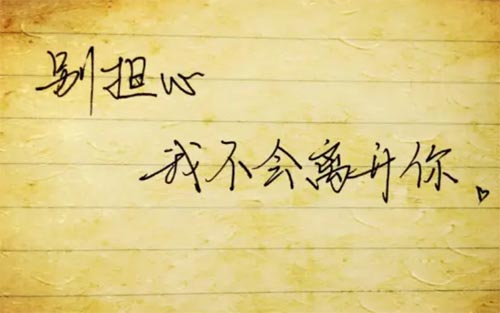 别担心
我不会离开你。